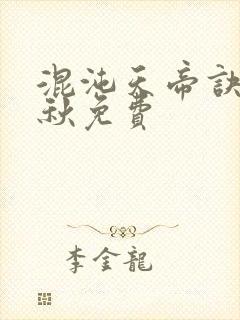 混沌天帝訣
秋免費
李金龍